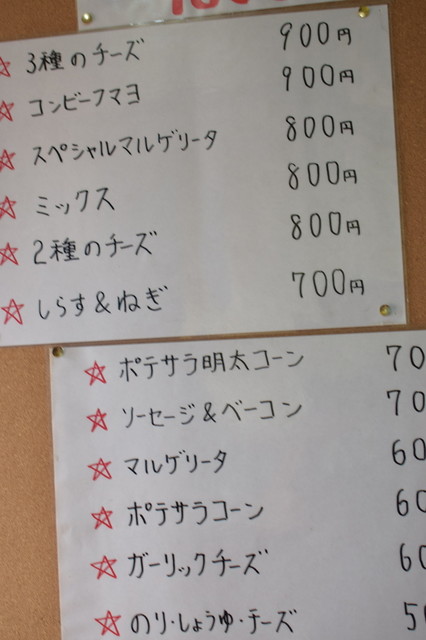 ☆ 3種のチーズ 900円
☆ コンビーフマヨ 900円
☆ スペシャルマルゲリータ 800円
☆ ミックス 800円
☆ 2種のチーズ 800円
☆ しらす&ねぎ 700円
☆ ポテサラ明太コーン 70
☆ ソーセージ&ベーコン 70
☆ マルゲリータ 60
☆ ポテサラコーン 60
☆ ガーリックチーズ 60
☆ のり・しょうゆ・チーズ 50